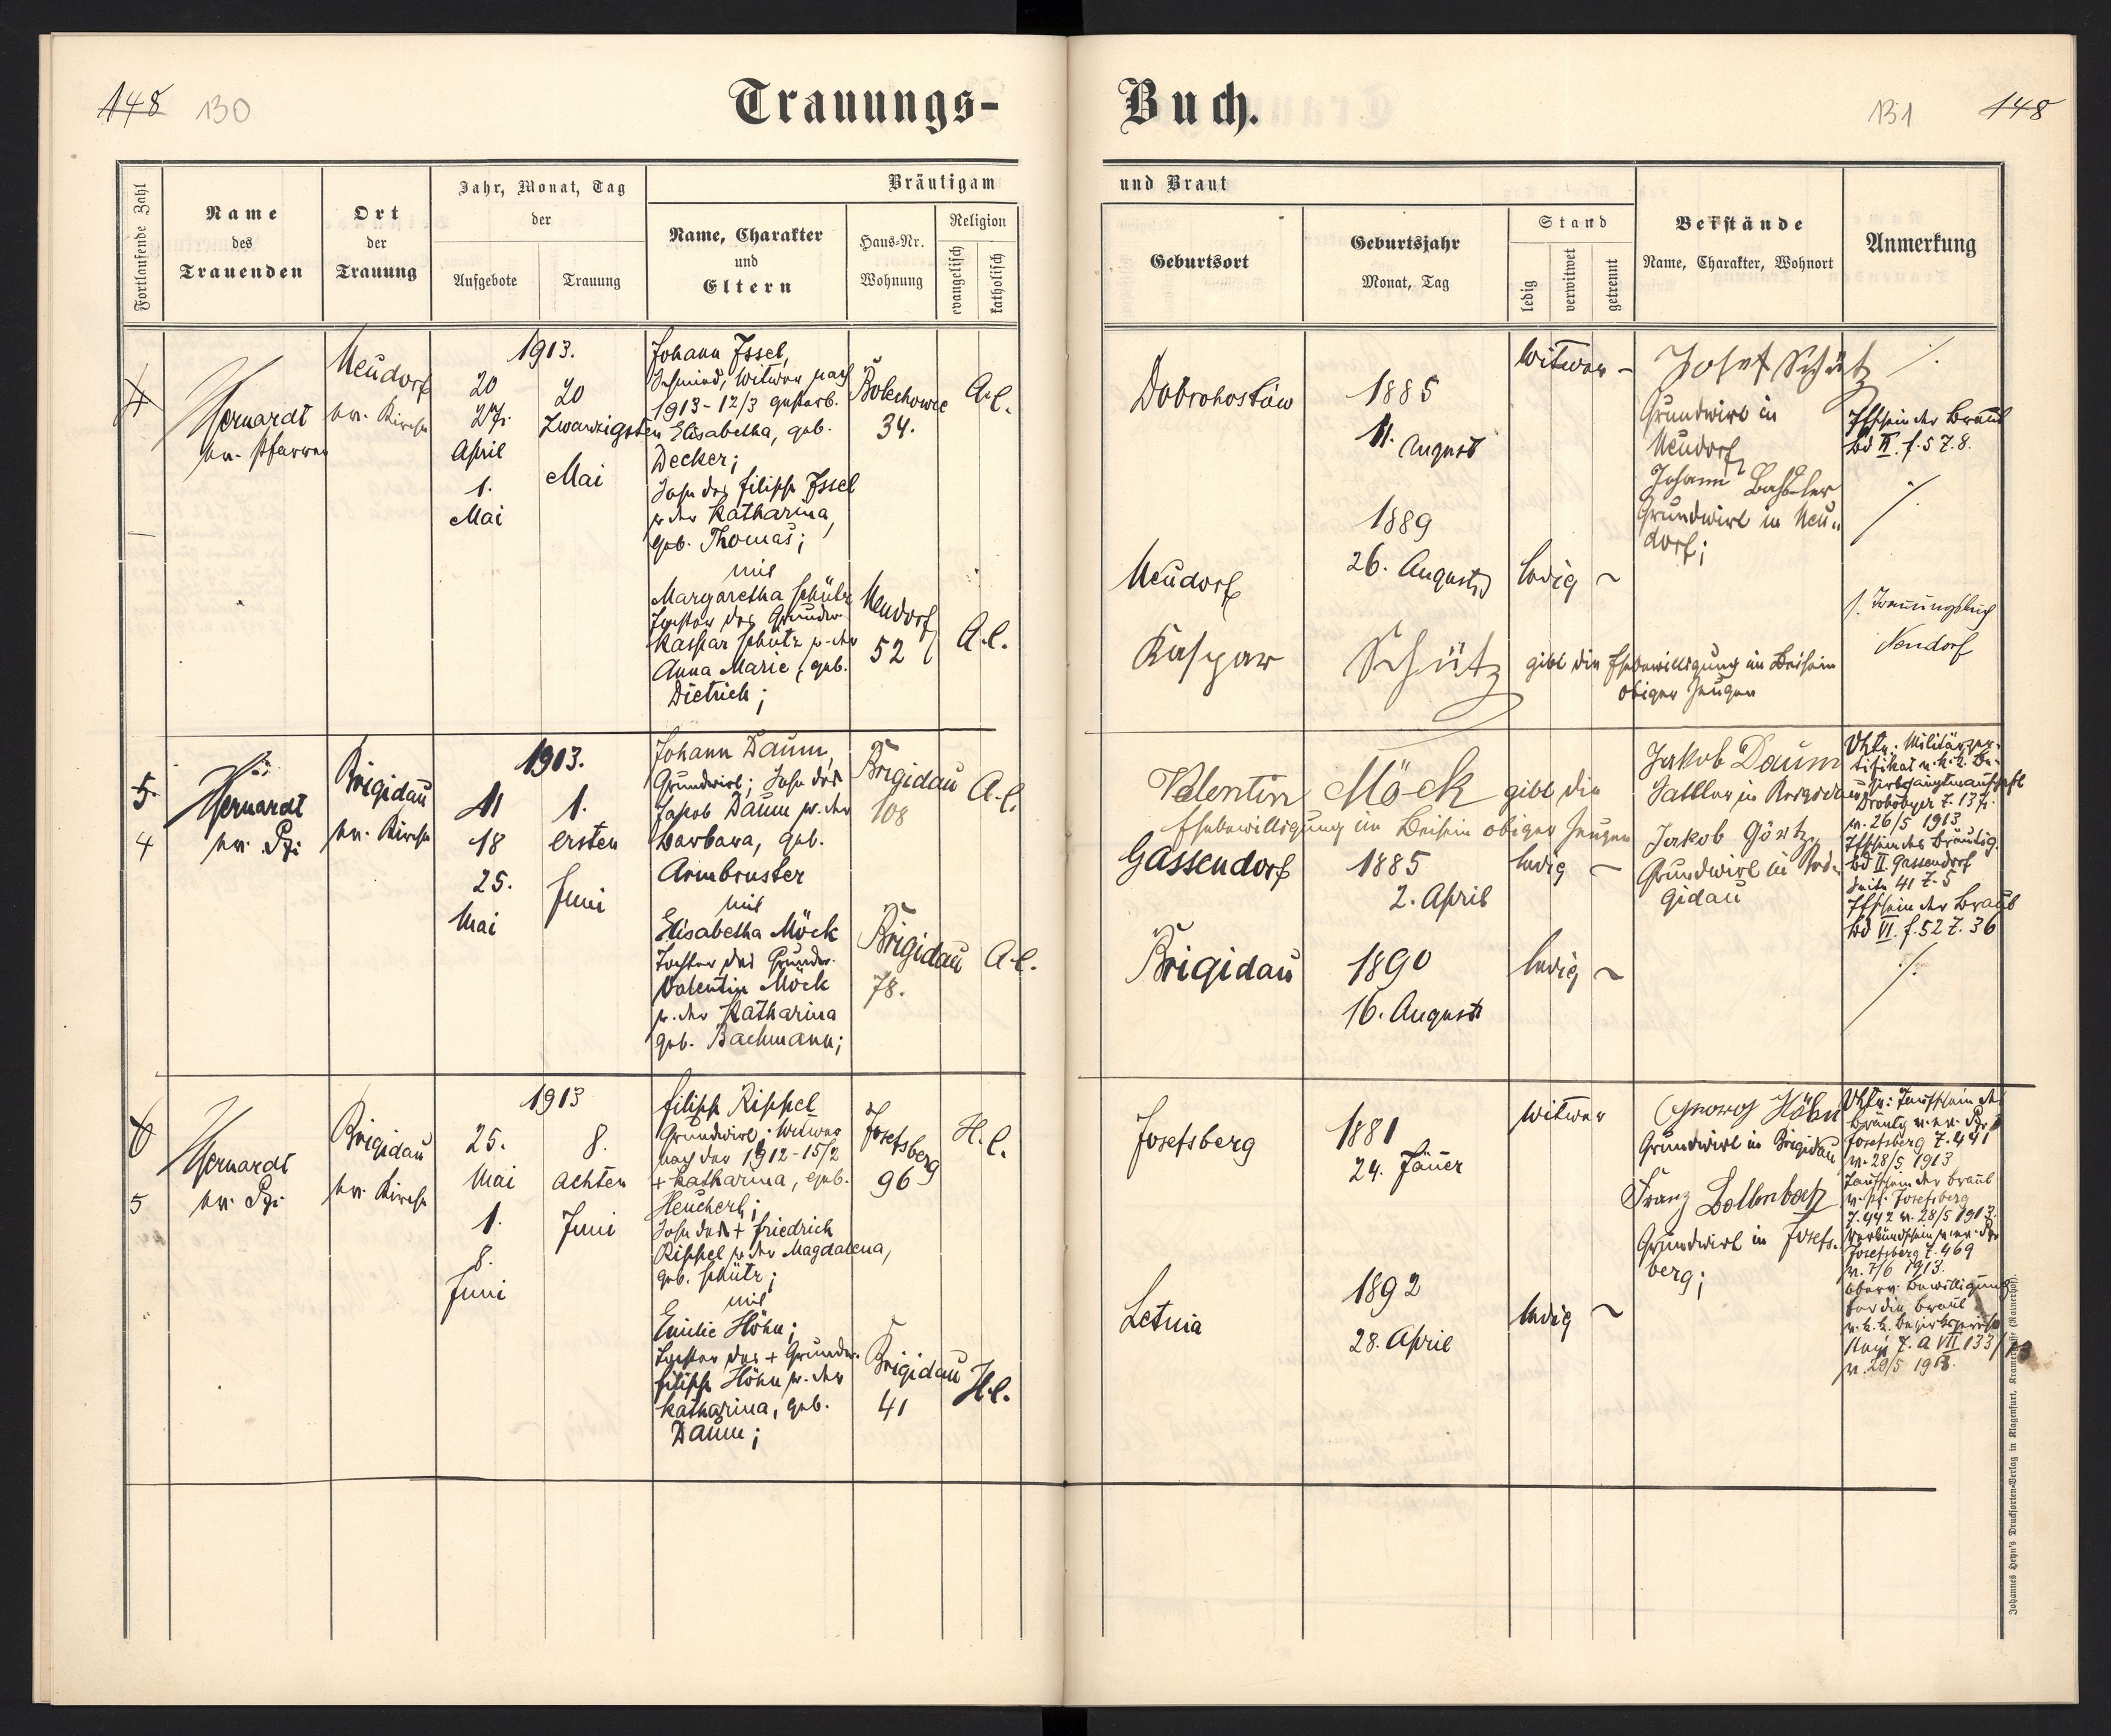 148 130
Trauungs-
Buch.
131 148
Fortlaufende Zahl
Name
des
Trauenden
Ort
der
Trauung
Jahr, Monat, Tag
der
Aufgebote
Trauung
Bräutigam
Name, Charakter
und
Eltern
Haus-Nr.
Wohnung
Religion
evangelisch
katholisch
und Braut
Geburtsort
Geburtsjahr
Monat, Tag
Stand
ledig
verwitwet
getrennt
Beistände
Name, Charakter, Wohnort
Anmerkung
4
ev. Pfarrer
Neudorf
ev. Kirche
1913.
20
27.
April
1.
Mai
20
Zwanzigsten
Mai
Johann Issel,
Schmied, Witwer nach
1913-12/3 gestorb.
Elisabetha, geb.
Decker;
Sohn des Filipp Issel
u. der Katharina,
geb. Thomas;
mit
Margaretha Schütz
Tochter des Grundw.
Kaspar Schütz u. der
Anna Marie, geb.
Dietrich;
Bolechowce
34.
A.C.
Neudorf
52
A.C.
Dobrohostów
1885
11. August
Witwer –
Neudorf
1889
26. August
ledig ~
Kaspar Schütz gibt die Ehebewilligung im Beisein
obiger Zeugen
Josef Schütz
Grundwirt in
Neudorf
Johann
Grundwirt in Neu-
dorf;
Tfschein der Braut
bd II. f. 57.8.
s. Trauungsbuch
Neudorf
5
4
Brigidau
ev. Kirche
1913.
11
18
25.
Mai
1.
ersten
Juni
Johann Daum,
Grundwirt; Sohn des
Jakob Daum u. der
Barbara, geb.
Armbruster
mit
Elisabetha Möck
Tochter des Grundw.
Valentin Möck
u. der Katharina
geb. Bachmann;
Brigidau
108
A.C.
Brigidau
78.
A.C.
Valentin Möck gibt die
Ehebewilligung im Beisein obiger Zeugen
Gassendorf
1885
2. April
ledig –
Brigidau
1890
16. August
ledig ~
Jakob Daum
Sattler in
Jakob Görtz,
Grundwirt in Bri-
gidau
Militärzer-
tifikat v. k. k. Be-
zirkshauptmannschaft
Z. 137.
v. 26/5 1913
Tfschein des Bräutig.
bd II. Gassendorf
Seite 41 Z. 5
Tfschein der Braut
bd VI. f. 52 Z. 36
6
5
Brigidau
ev. Kirche
1913
25.
Mai
1.
8.
Juni
8.
achten
Juni
Filipp Rippel
Grundwirt; Witwer
nach der 1912-15/2
+ Katharina, geb.
Heuchert;
Sohn des + Friedrich
Rippel u. der Magdalena,
geb. Schütz;
mit
Emilie Höhn;
Tochter des + Grundw.
Filipp Höhn u. der
Katharina, geb.
Daum;
Josefsberg
96
H.C.
Brigidau
41
H.C.
Josefsberg
1881
24. Jäner
Witwer
Letnia
1892
28. April
ledig ~
Georg Höhn
Grundwirt in Brigidau
Franz
Grundwirt in Josefs-
berg;
Taufschein des
Bräutg. v. ev.
Josefsberg Z. 441
v. 28/5 1913
Taufschein der Braut
Josefsberg
Z. 442 v. 28/5 1913.
Verkündschein v. ev.
Josefsberg Z. 469
v. 7/6 1913.
Bewilligung
für die Braut
v. k. k. Bezirksgericht
Z. A VII 133/13
v. 29/5 1913.
Johannes Heyn's Drucksorten-Verlag in Klagenfurt, Kramergasse (Rainerhof).